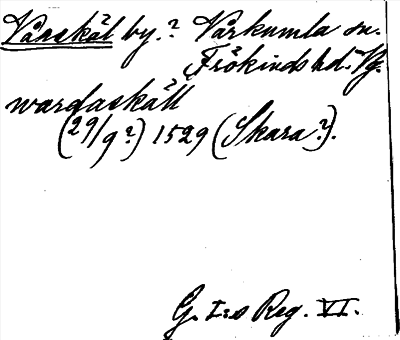 Vårskäl by.? Vårkumla sn.
Frökinds hd. Vg.
wardaskäll
(29/9?) 1529 (Skara?).
G. I:s Reg. VI.